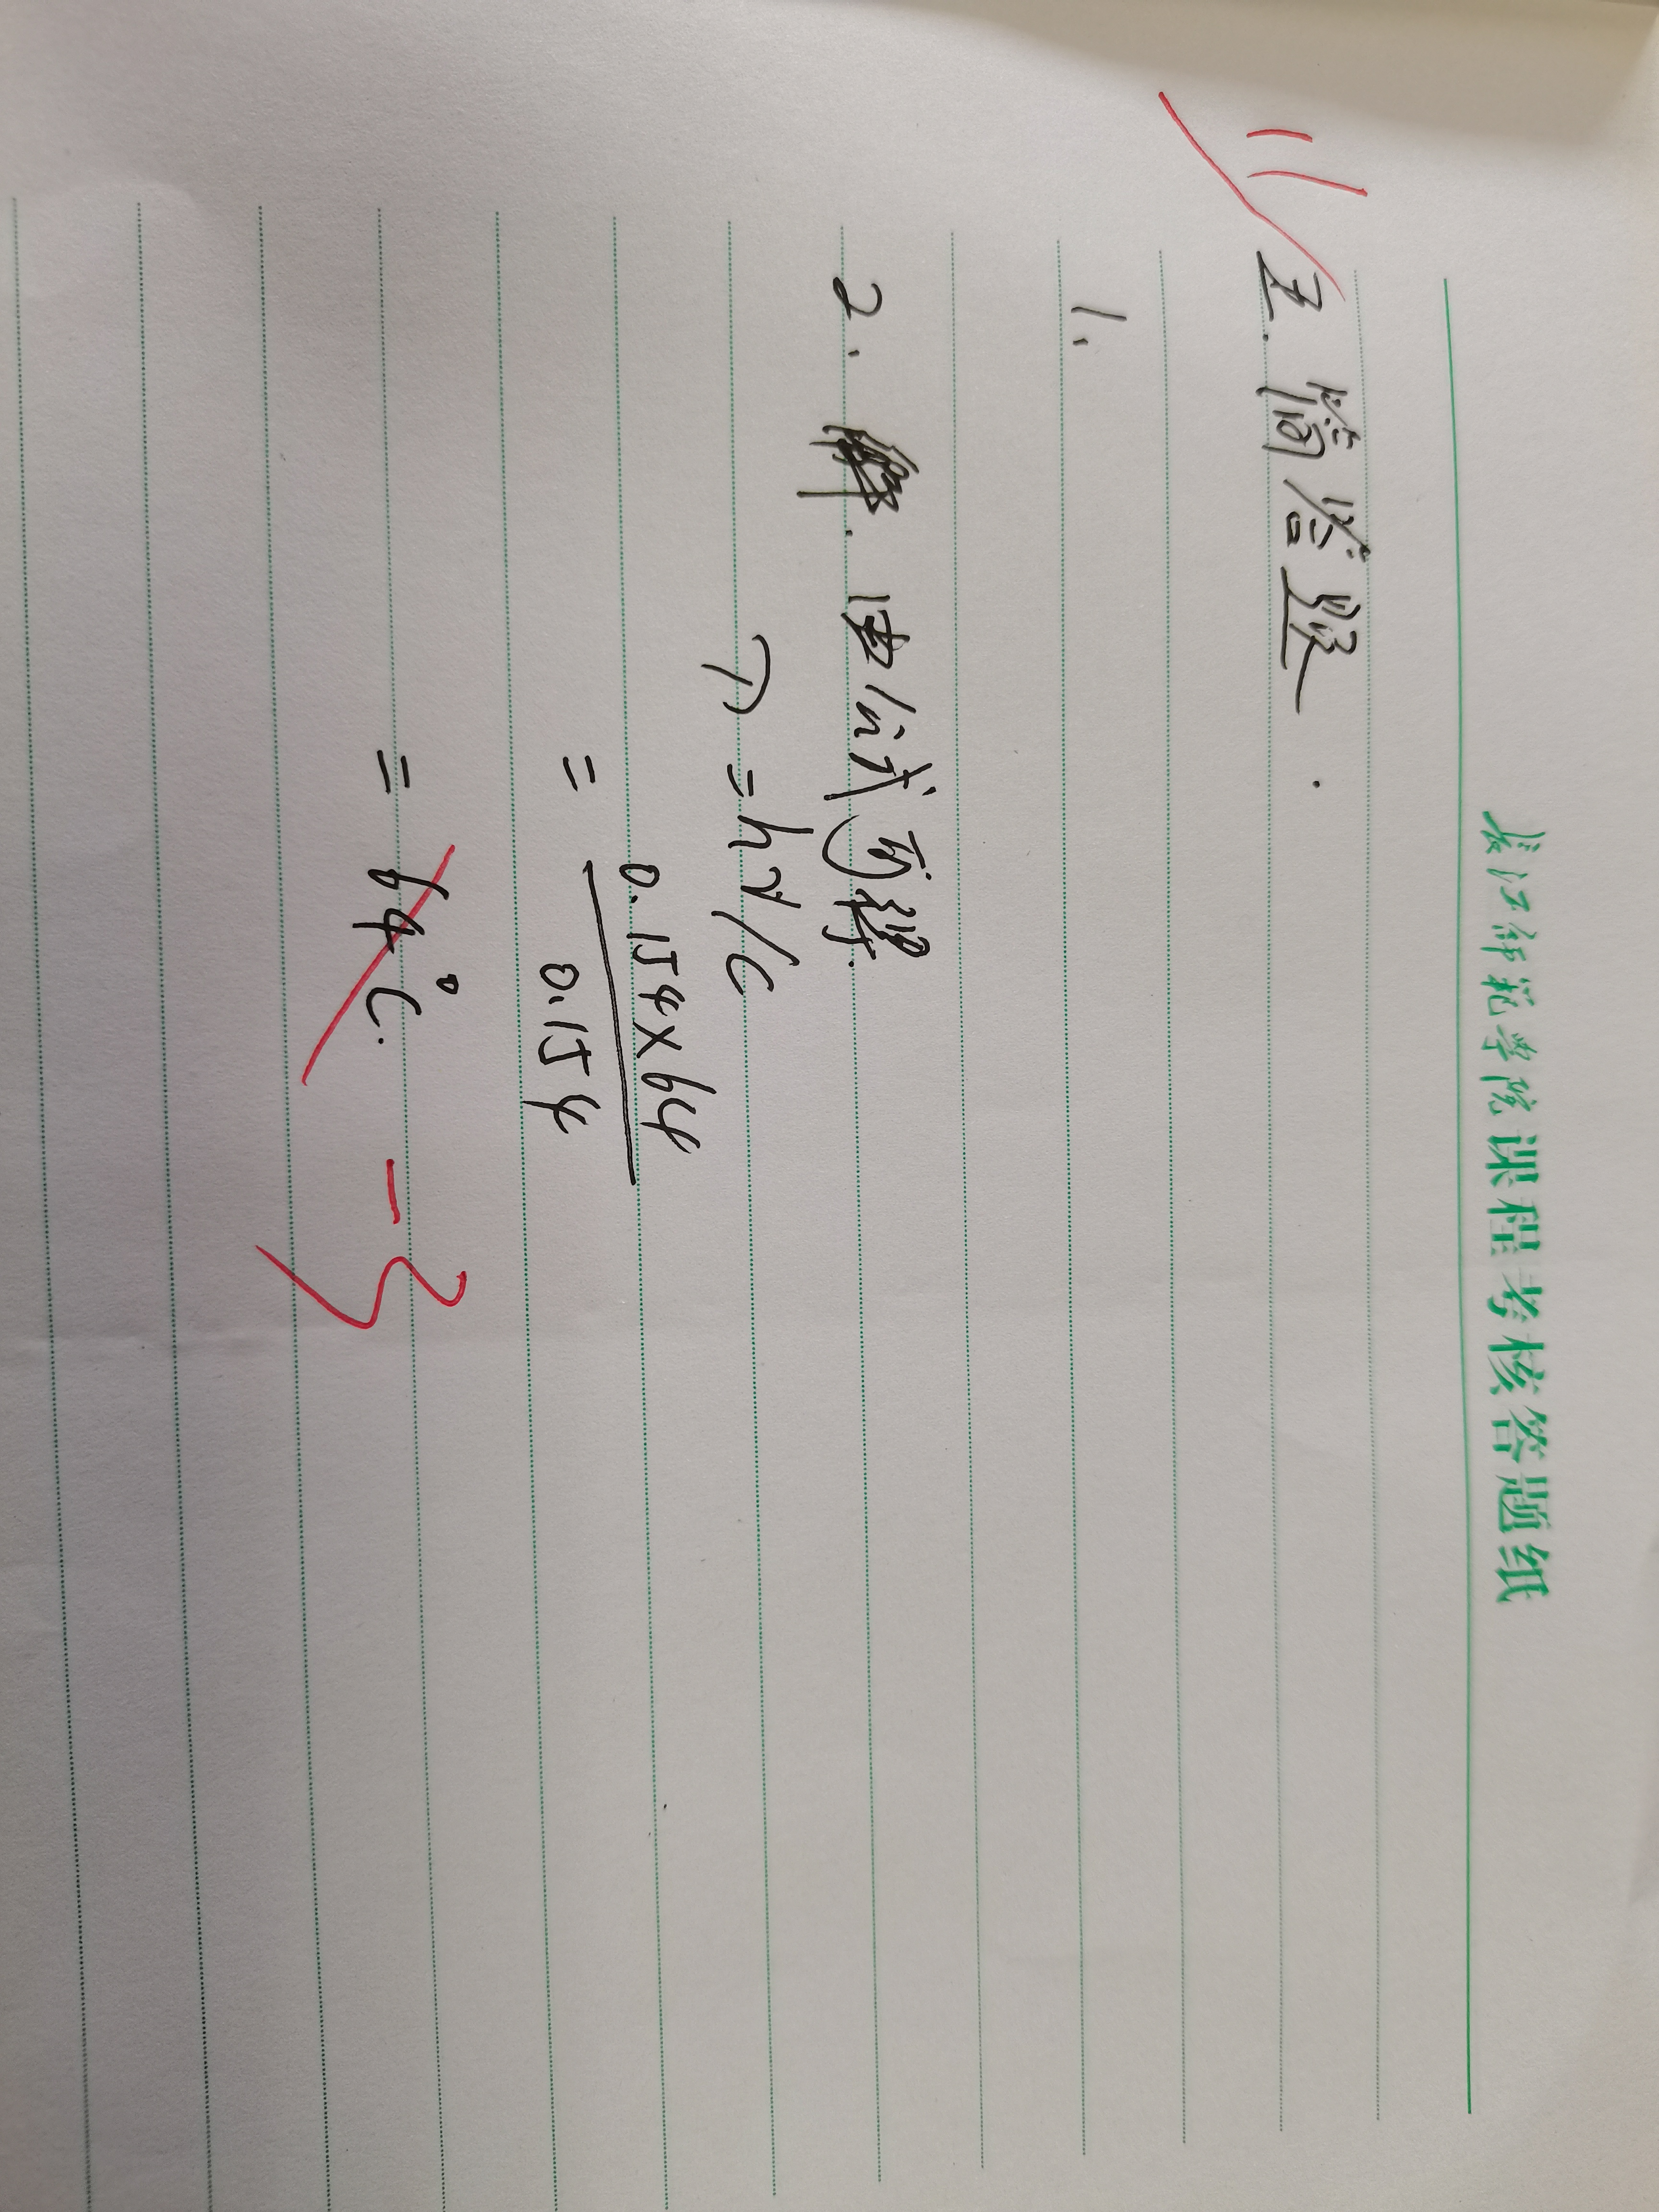 长江师范学院课程考核答题纸
11
五.简答题.
1.
2.解.由公式可得.
D=hγ/C
=0.154×64
0.154
=64℃.
-3